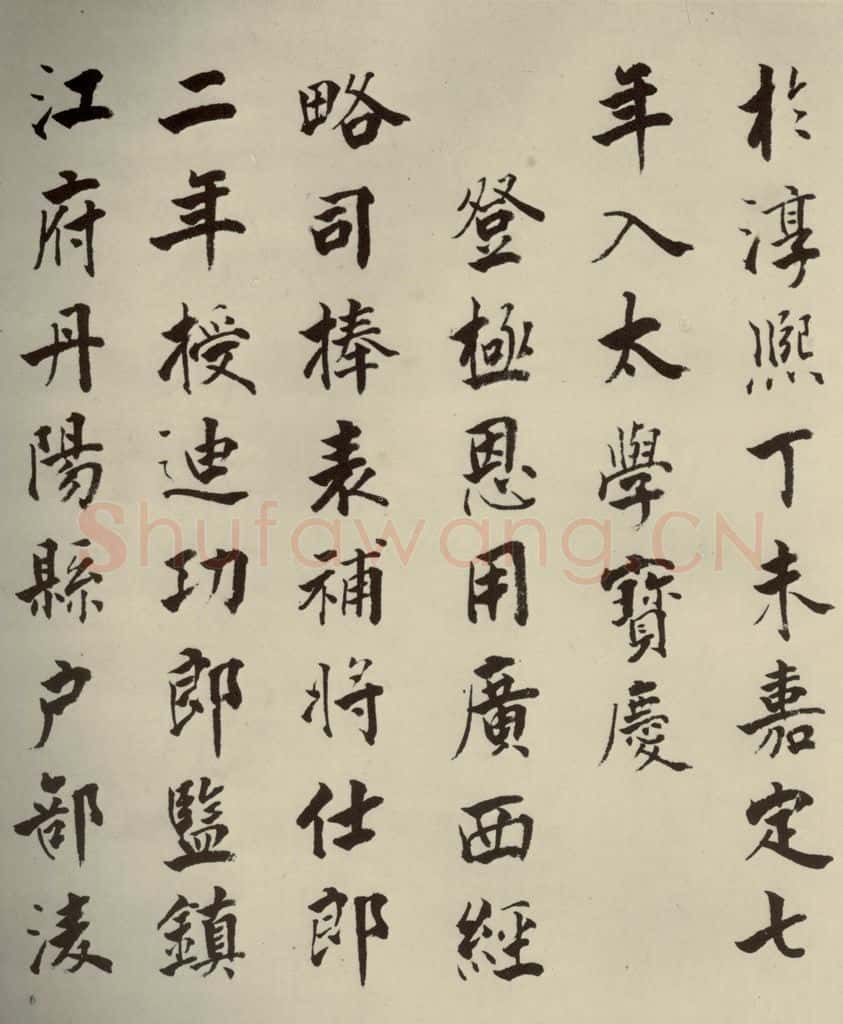 於淳熈丁未嘉定七
年入太學寳慶
登極恩用廣西經
略司捧表補將仕郎
二年授迪功郎監鎮
江府丹陽縣户部淩
Shufawang.CN